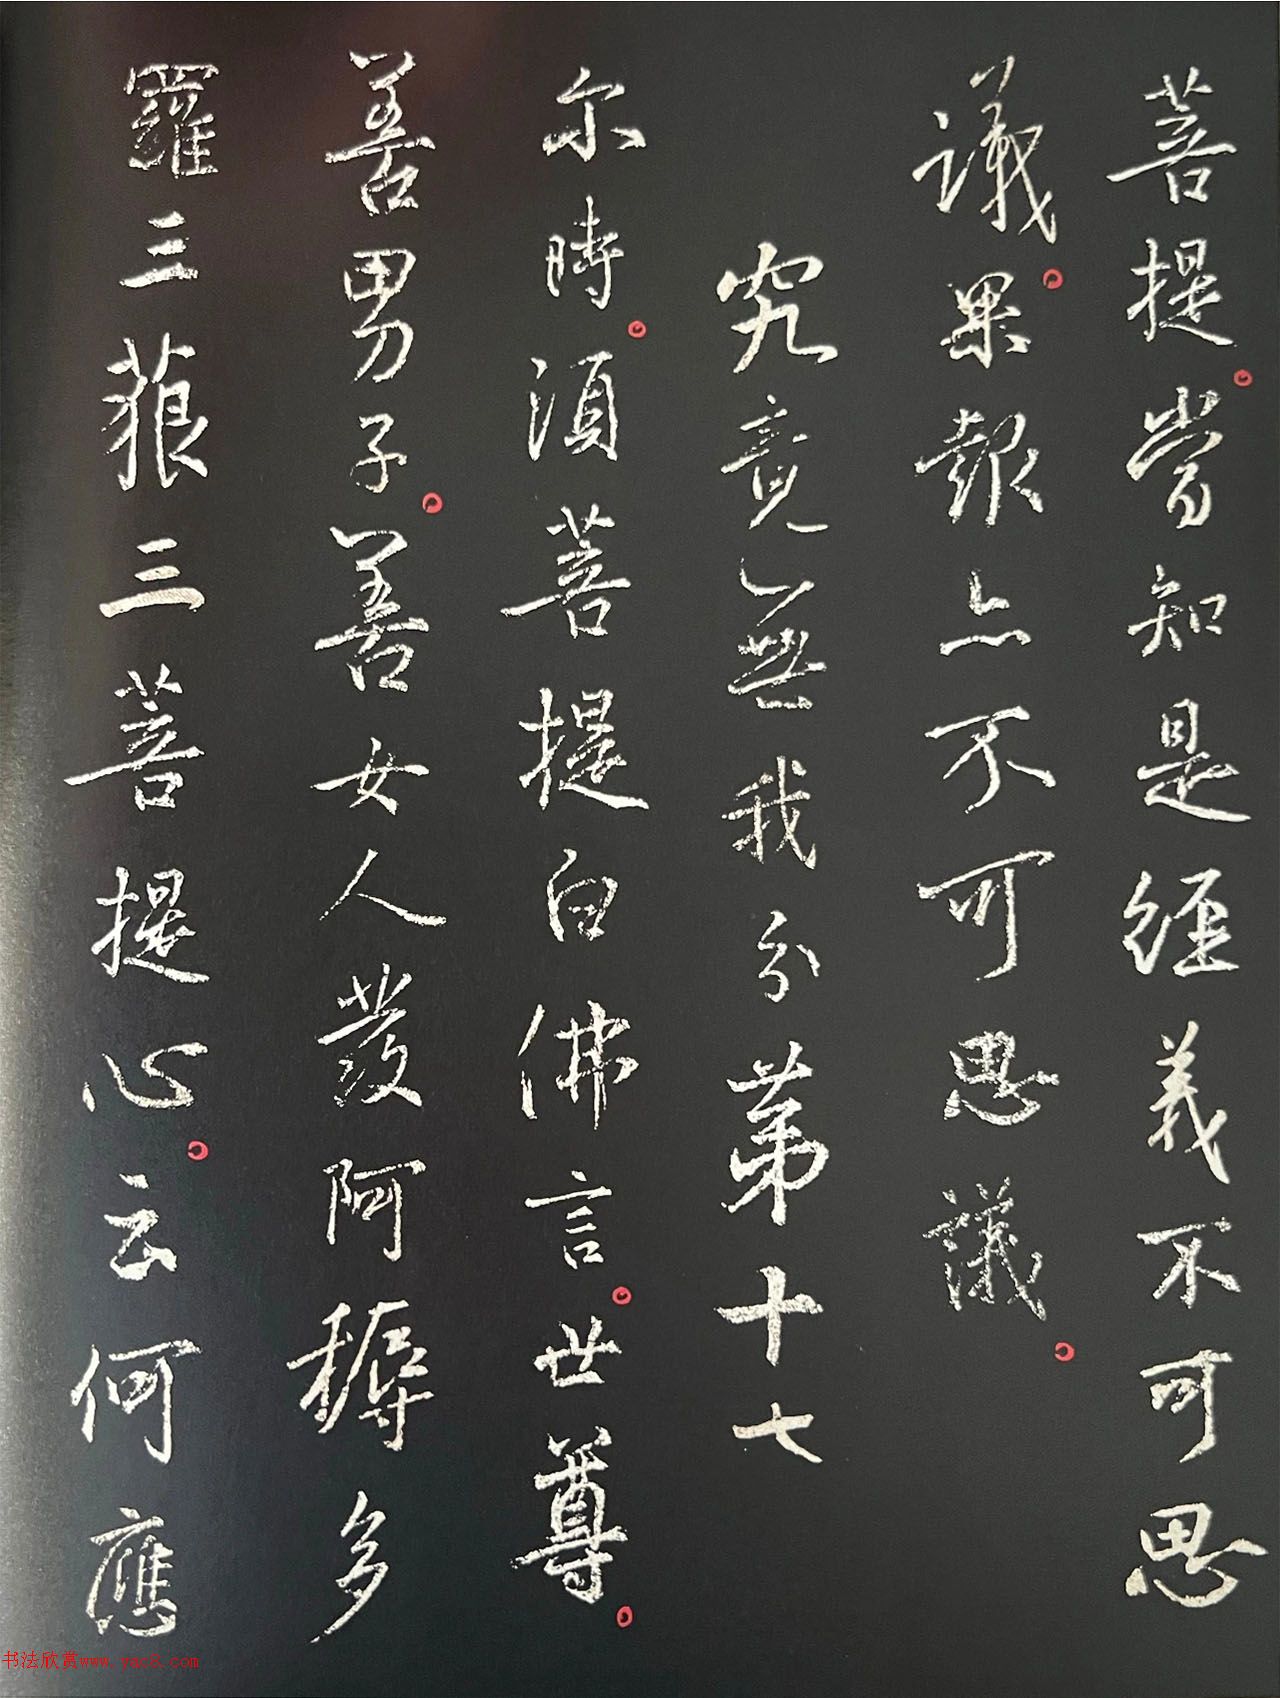 菩提。當知是經義不可思
議。果報亦不可思議。
究竟無我分第十七
尔時。須菩提白佛言。世尊。
善男子。善女人發阿耨多
羅三藐三菩提心。云何應
书法欣赏www.yac8.com